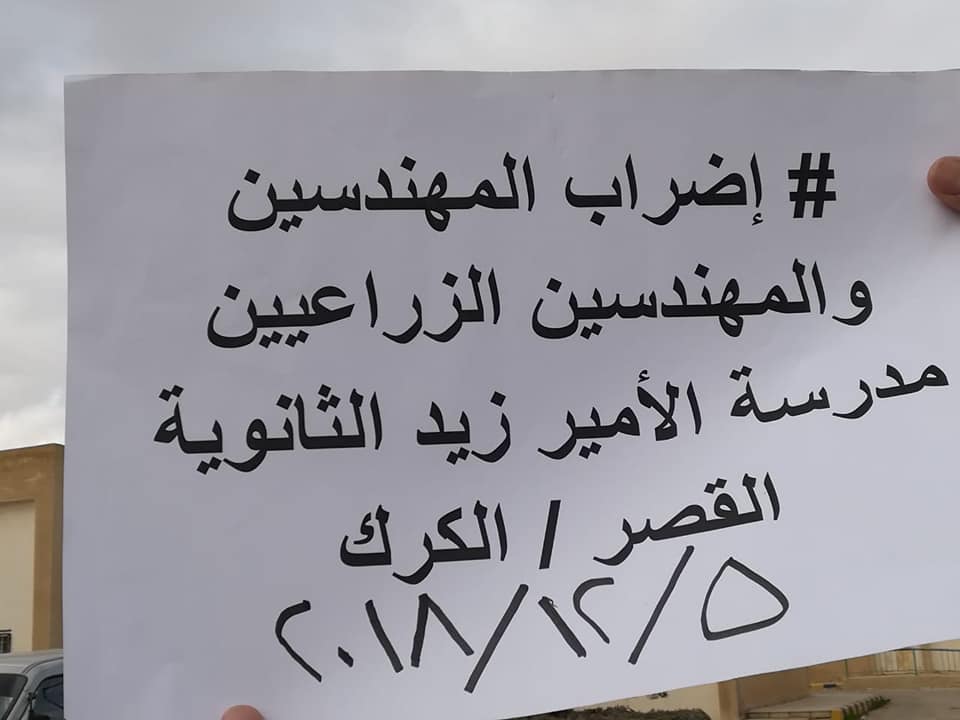 # إضراب المهندسين
والمهندسين الزراعيين
مدرسة الأمير زيد الثانوية
القصر / الكرك
٢٠١٨/١٢/٥